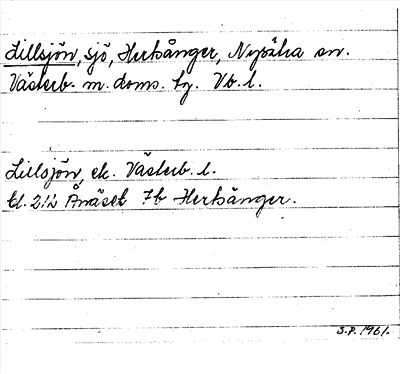 Lillsjön, sjö, Herkånger, Nysätra sn.
Västerb. m. doms. tg. Vb. l.
Lillsjön, ek. Västerb. l.
bl. 21:2 Ånäset 7b Herkånger.
S.P. 1961.